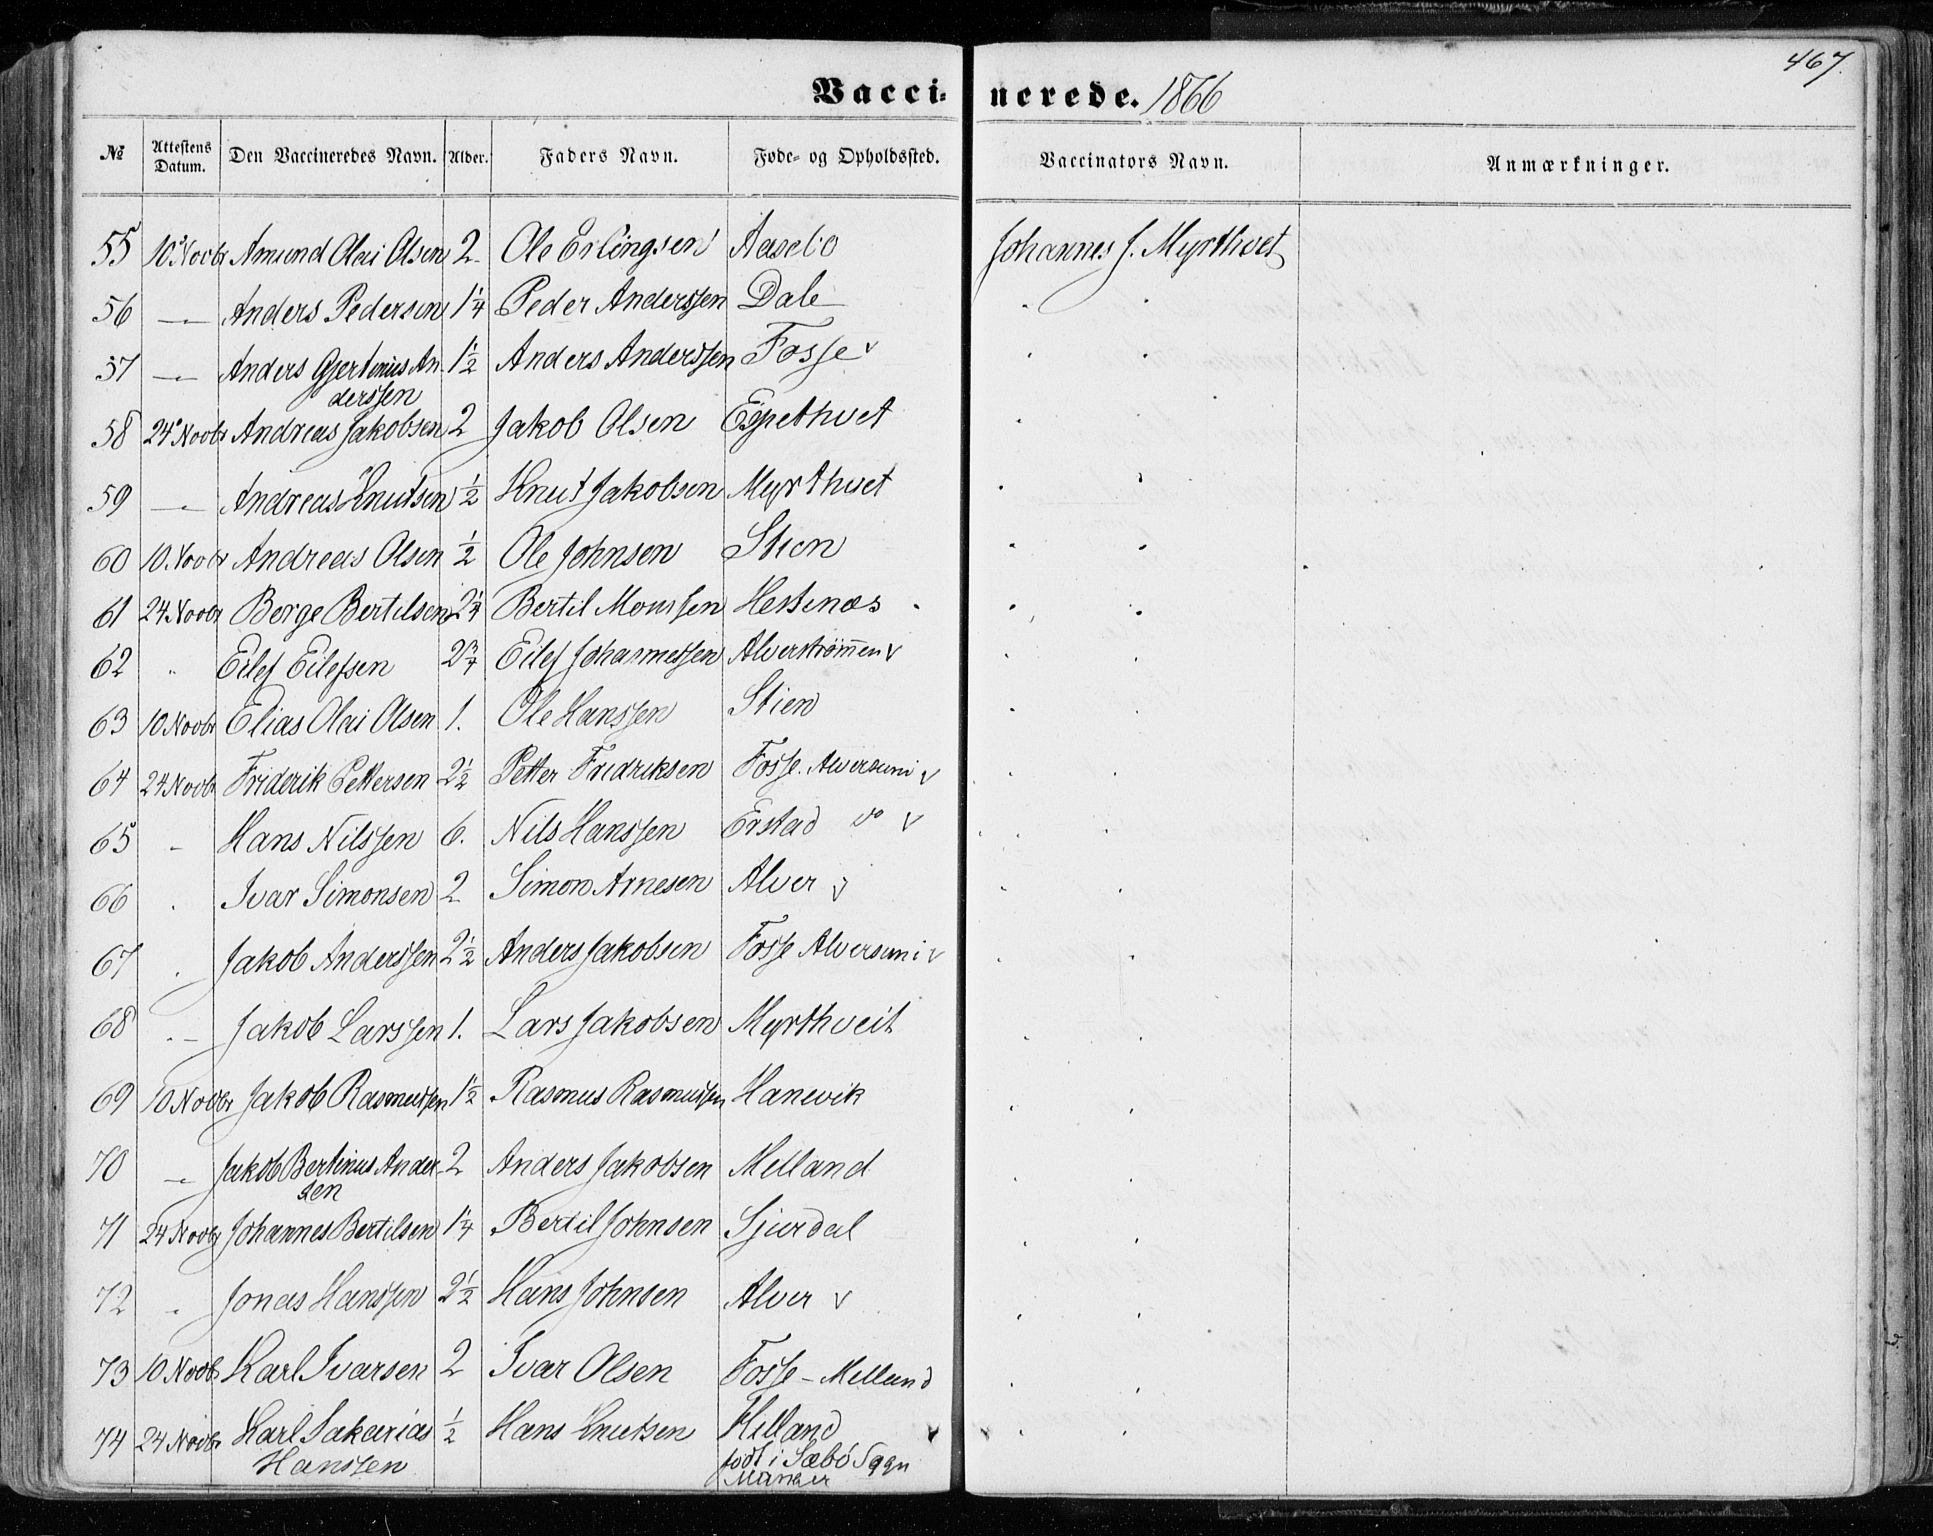 467.
Vaccinerede. 1866
№ Attestens Datum. Den Vaccineredes Navn. Alder. Faders Navn. Føde- og Opholdssted. Vaccinators Navn. Anmærkninger.
55 10 Novbr Amund Olai Olsen 2 Ole Erlingsen Aasebø Johannes J. Myrthvet
56 — Anders Pedersen 1 1/4 Peder Anderssen Dale " "
57 — Anders Gjertinius An- 1 1/2 Anders Anderssen Fosse v " "
derssen
58 24 Novbr Andreas Jakobsen 2 Jakob Olsen Espethvet "
59 — Andreas Knutsen 1/2 Knut Jakobsen Myrthvet " "
60 10. Novbr Andreas Olsen 1/2 Ole Johnsen Stien " "
61 24 Novbr Berge Bertilsen 2 1/4 Bertil Monssen Hestenæs " "
62 " Eilef Eilefsen 2 3/4 Eilef Johannessen Alverstrømmen v " "
63 10 Novbr Elias Olai Olsen 1. Ole Hanssen Stien " "
64 24 Novbr Friderik Pettersen 2 1/2 Petter Fredriksen Fosse. Alversund v " "
65 " Hans Nilssen 6. Nils Hanssen Erstad do v " "
66 " Ivar Simonsen 2 Simon Arnesen Alver v " "
67 " Jakob Anderssen 2 1/2 Anders Jakobsen Fosse Alversund v " "
68 " Jakob Larssen 1. Lars Jakobsen Myrthveit " "
69 10 Novbr Jakob Rasmussen 1 1/2 Rasmus Rasmussen Hanevik " "
70 — Jakob Bertinius Ander- 2 Anders Jakobsen Melland " "
sen
71 24 Novbr Johannes Bertilsen 1 1/4 Bertil Johnsen Sjurdal " "
72 " Jonas Hanssen 2 1/2 Hans Johnsen Alver v " "
73 10 Novbr Karl Ivarsen 2 Ivar Olsen Fosse - Melland " "
74 24 Novbr Karl Sakarias 1/2 Hans Knutsen Helland v " "
Hanssen født i Sæbö Sogn
Manger